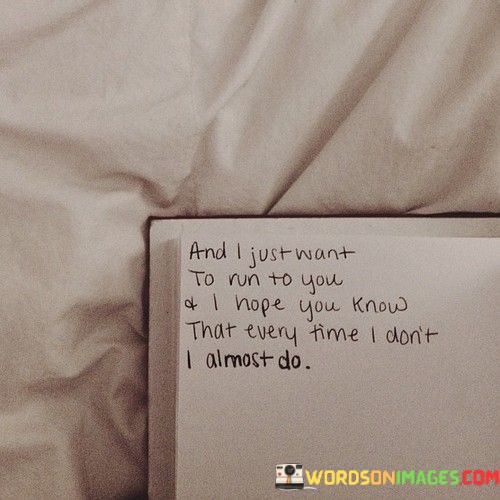 And I just want
To run to you
& I hope you know
That every time I don't
I almost do.
WORDSONIMAGES.COM